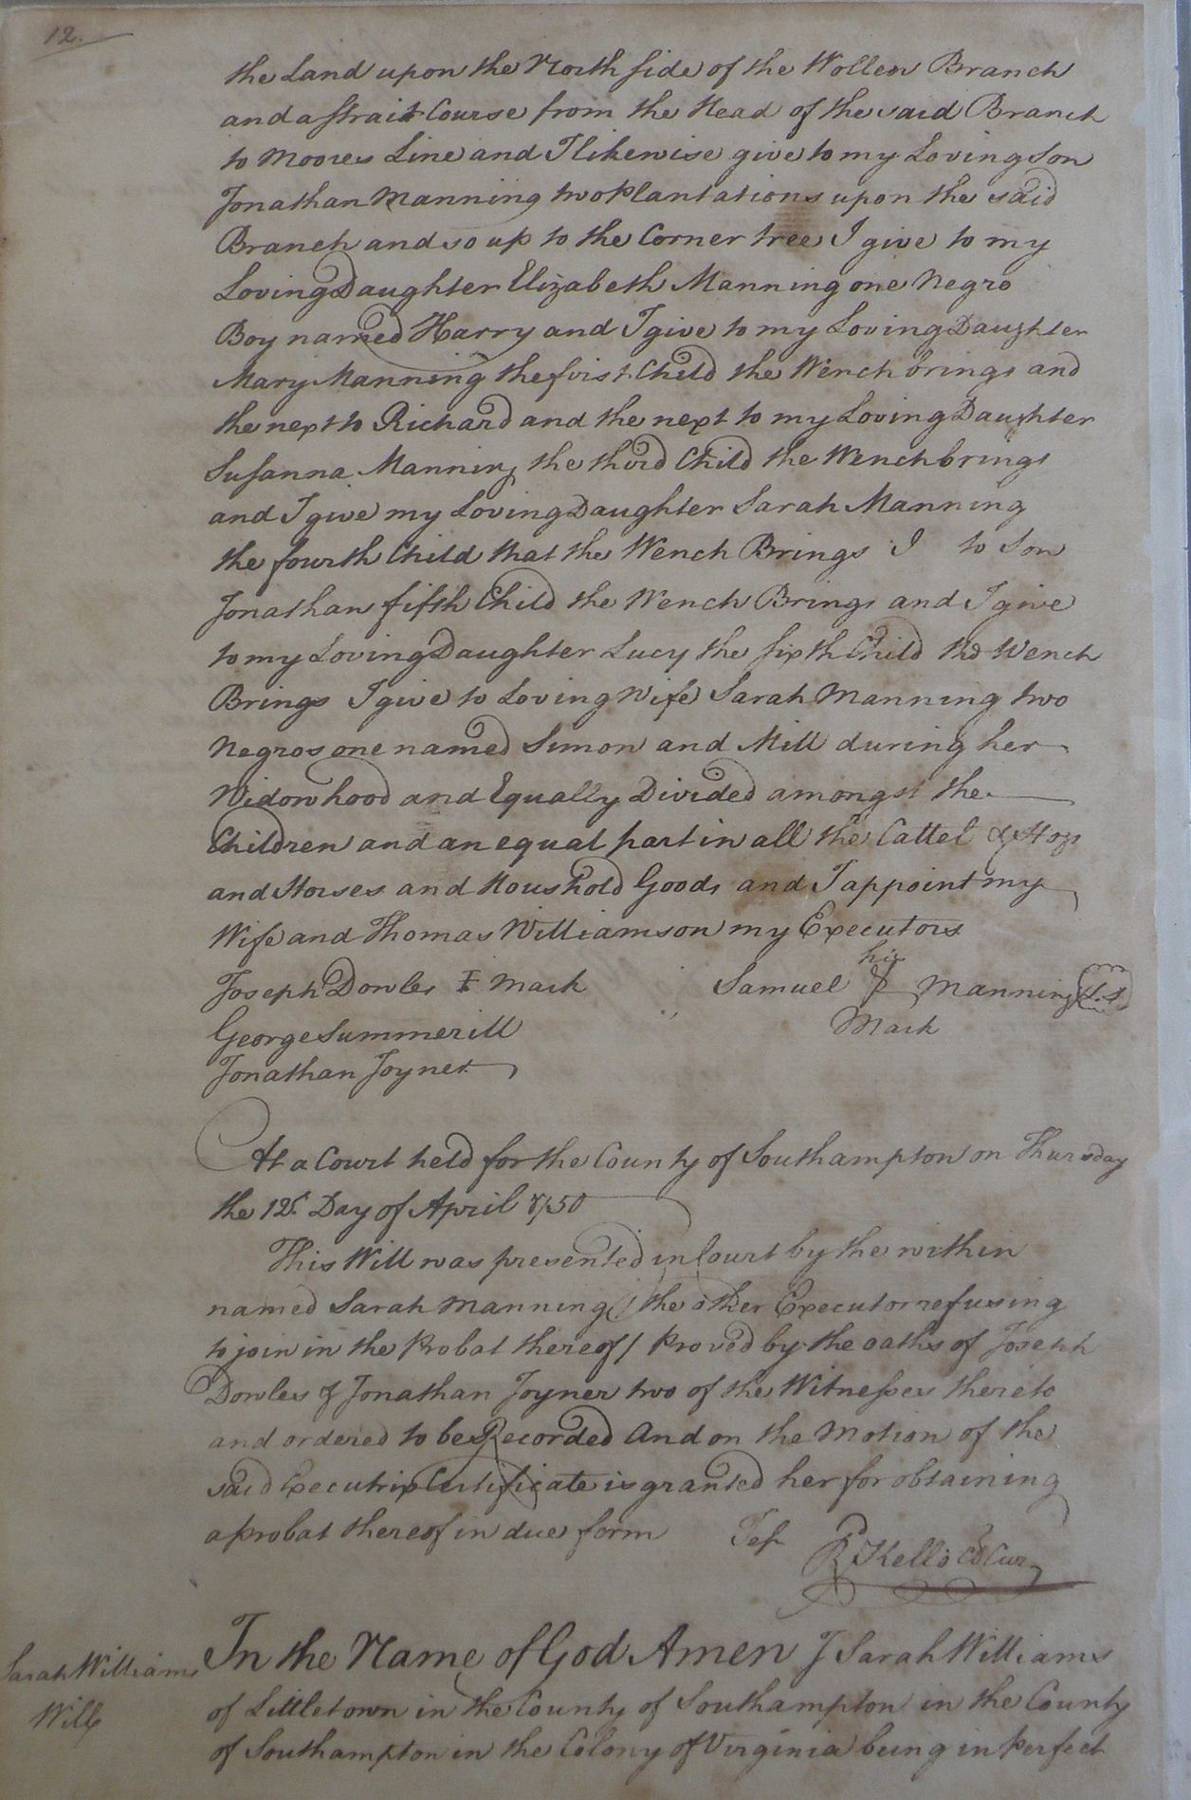 12.
the Land upon the North side of the Wollen Branch
and a strait Course from the Head of the said Branch
to Moores Line and I likewise give to my Loving Son
Jonathan Manning two Plantations upon the said
Branch and so up to the Corner tree I give to my
Loving Daughter Elizabeth Manning one Negro
Boy named Harry and I give to my Loving Daughter
Mary Manning the first Child the Wench brings and
the next to Richard and the next to my Loving Daughter
Susanna Manning the third Child the Wench brings
and I give my Loving Daughter Sarah Manning
the fourth Child that the Wench Brings I to Son
Jonathan fifth Child the Wench Brings and I give
to my Loving Daughter Lucy the sixth Child the Wench
Brings I give to Loving Wife Sarah Manning two
Negros one named Simon and Mill during her
Widowhood and Equally Divided amongst the
Children and an equal part in all the Cattel & Hogs
and Horses and Houshold Goods and I appoint my
Wife and Thomas Williamson my Executors
Joseph Dowles I Mark Samuel his Manning L.S
George Summerill Mark
Jonathan Joyner
At a Court held for the County of Southampton on Thursday
the 12t. Day of April 1750
This Will was presented in Court by the within
named Sarah Manning (the other Executor refusing
to join in the Probat thereof) Proved by the oaths of Joseph
Dowles & Jonathan Joyner two of the Witnesses thereto
and ordered to be Recorded And on the Motion of the
said Executrix Certificate is granted her for obtaining
a probat thereof in due form Test
R Kello Cl Cur
Sarah Williams In the Name of God Amen I Sarah Williams
Will of Littletown in the County of Southampton in the County
of Southampton in the Colony of Virginia being in Perfect